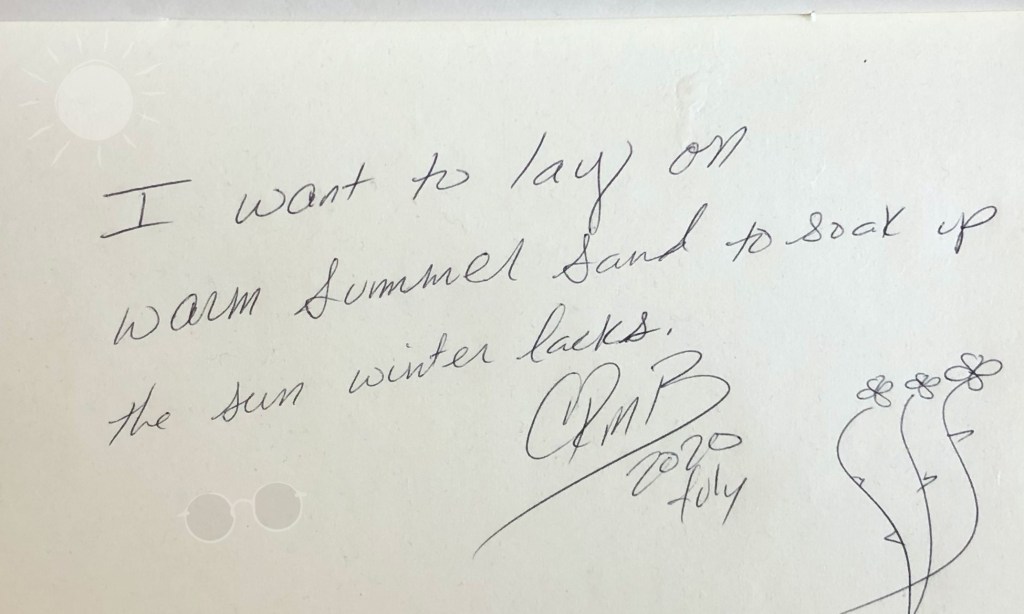 I want to lay on
warm summer sand to soak up
the sun winter lacks.
CRmB
2020
July